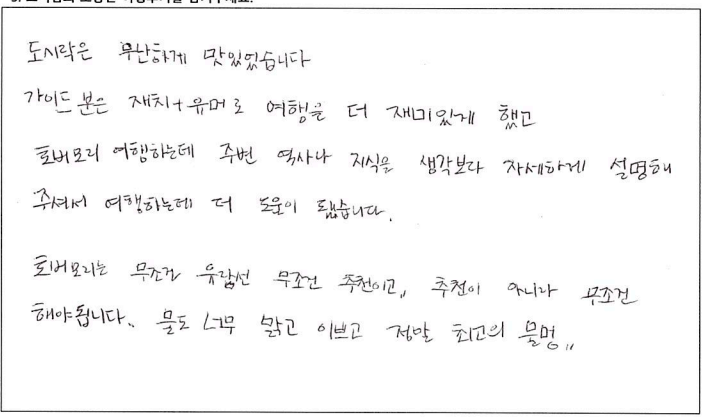 도시락은 무난하게 맛있었습니다
가이드 분은 재치+유머로 여행을 더 재미있게 했고
토버모리 여행하는데 주변 역사나 지식을 생각보다 자세하게 설명해
주셔서 여행하는데 더 도움이 됐습니다.
토버모리는 무조건 유람선 무조건 추천이고,, 추천이 아니라 무조건
해야됩니다.. 물도 너무 맑고 이쁘고 정말 최고의 물멍,,